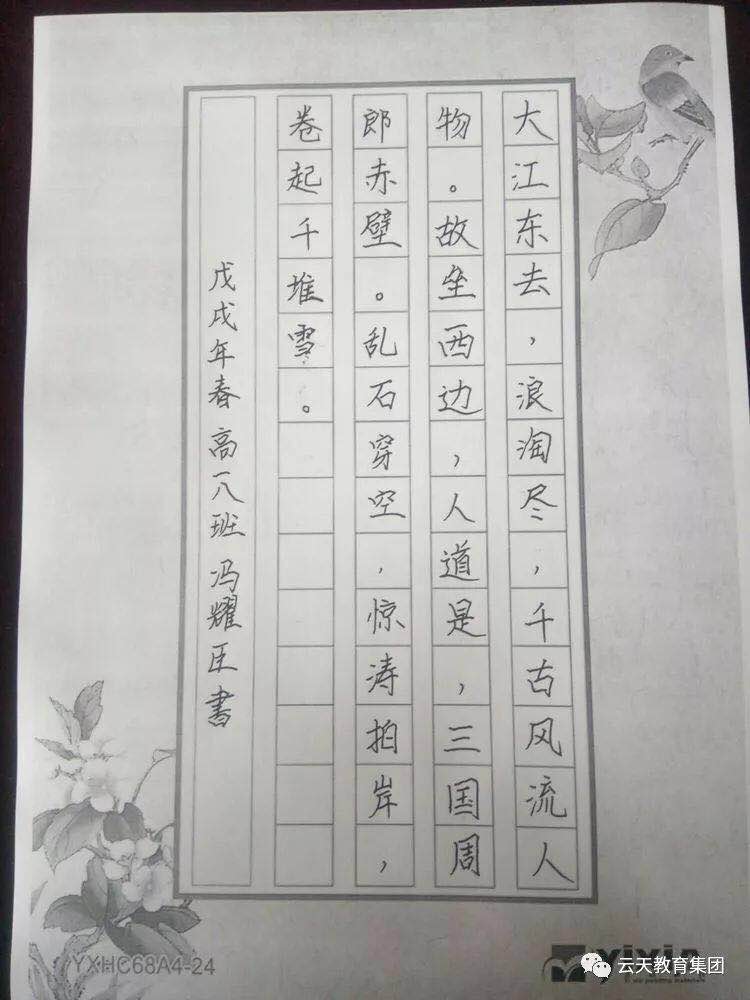 大江东去，浪淘尽，千古风流人
物。故垒西边，人道是，三国周
郎赤壁。乱石穿空，惊涛拍岸，
卷起千堆雪。
戊戌年春 高一八班 冯耀臣書
YXHC68A4-24
yixin
云天教育集团